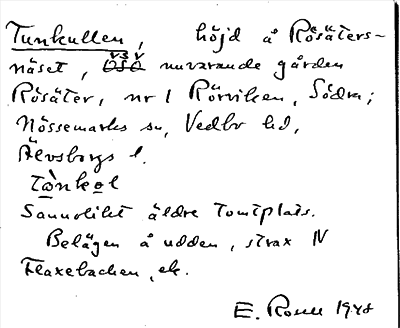 Tunkullen, höjd å Rösäters-
näset, VSV nuvarande gården
Rösäter, nr 1 Rörviken, Södra;
Nössemarks sn, Vedbo hd,
Älvsborgs l.
tònkəl
Sannolikt äldre tomtplats.
Belägen å udden, strax N
Flaxebacken, ek.
E. Rosell 1948